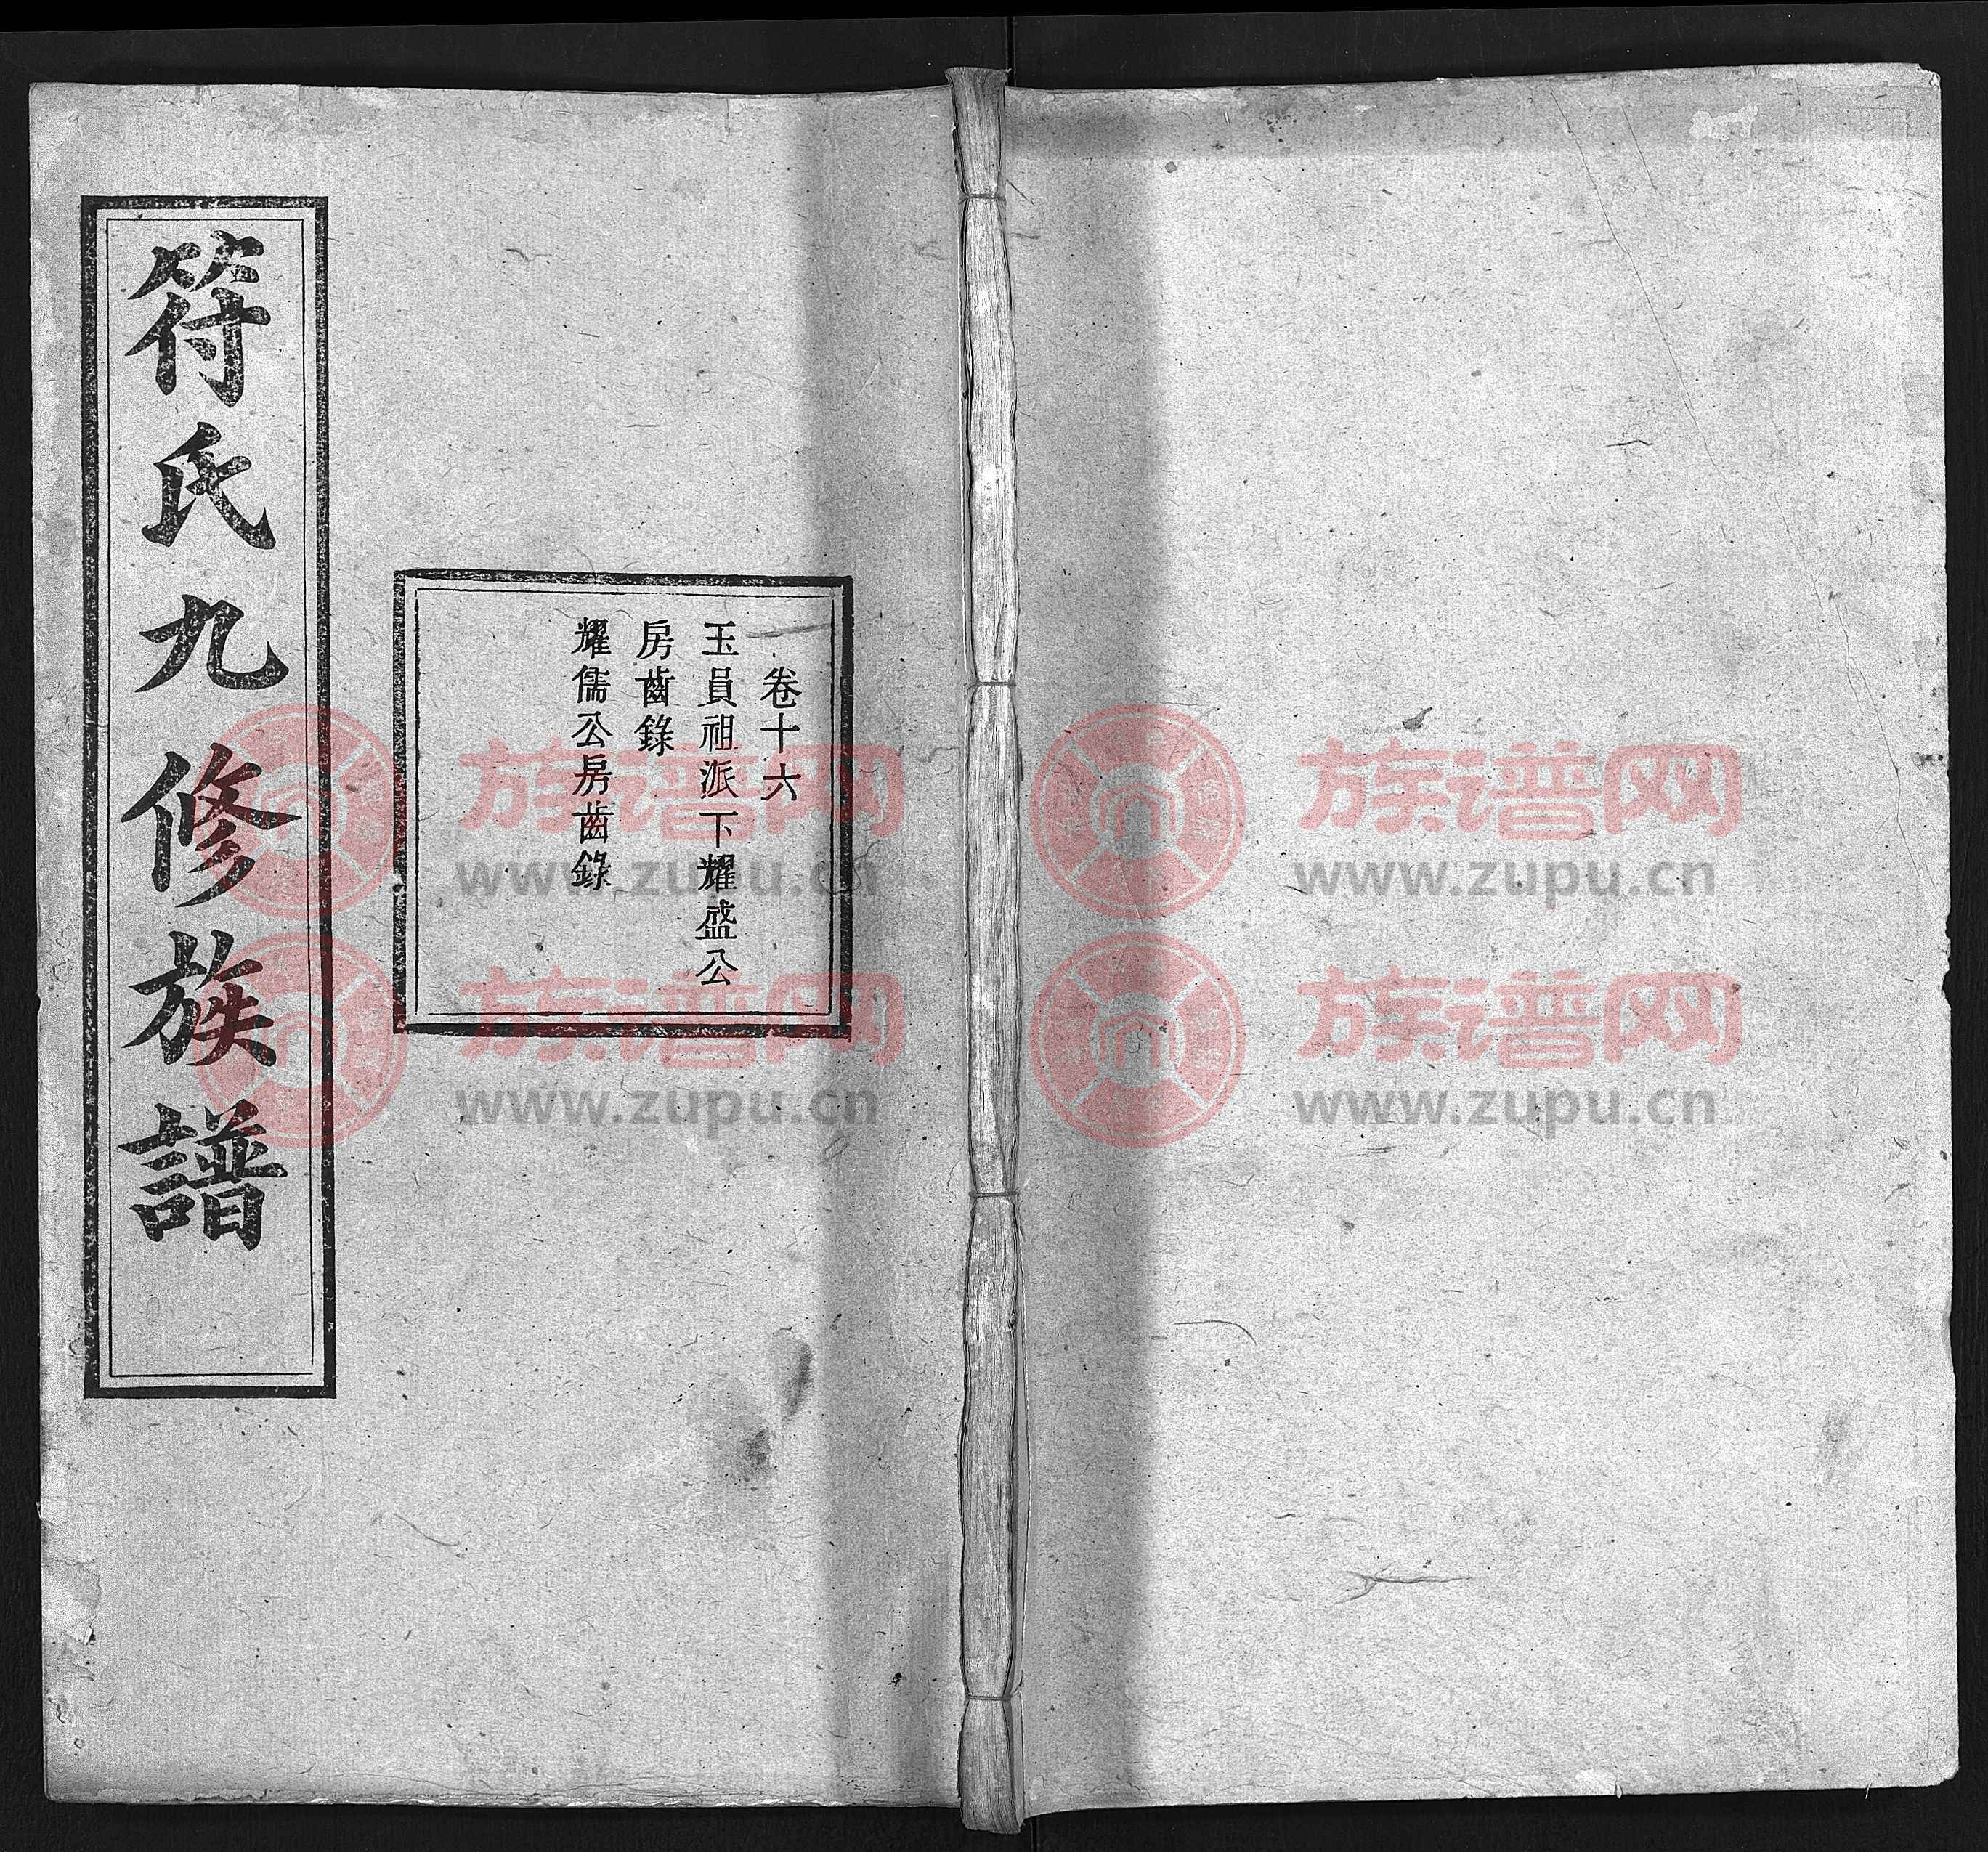 符氏九修族譜
卷十六
玉員祖派下耀盛公
房齒錄
耀儒公房齒錄
族谱网
www.zupu.cn
族谱网
www.zupu.cn
族谱网
www.zupu.cn
族谱网
www.zupu.cn